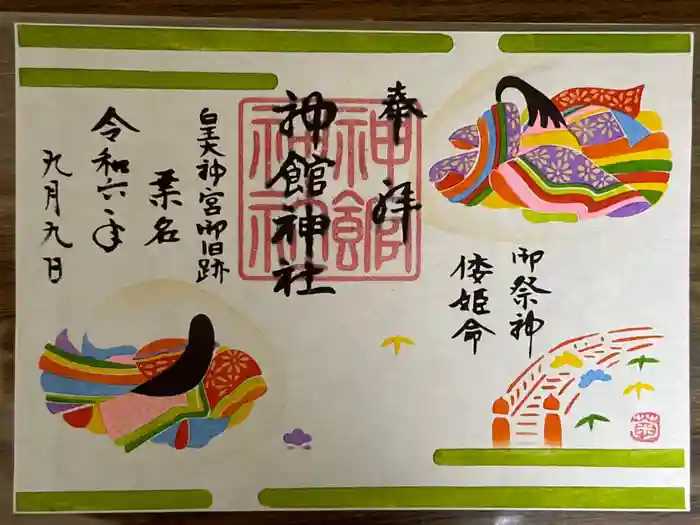 奉拝
御祭神
倭姫命
神館神社
神館神社
皇大神宮御旧跡
桑名
令和六年
九月九日